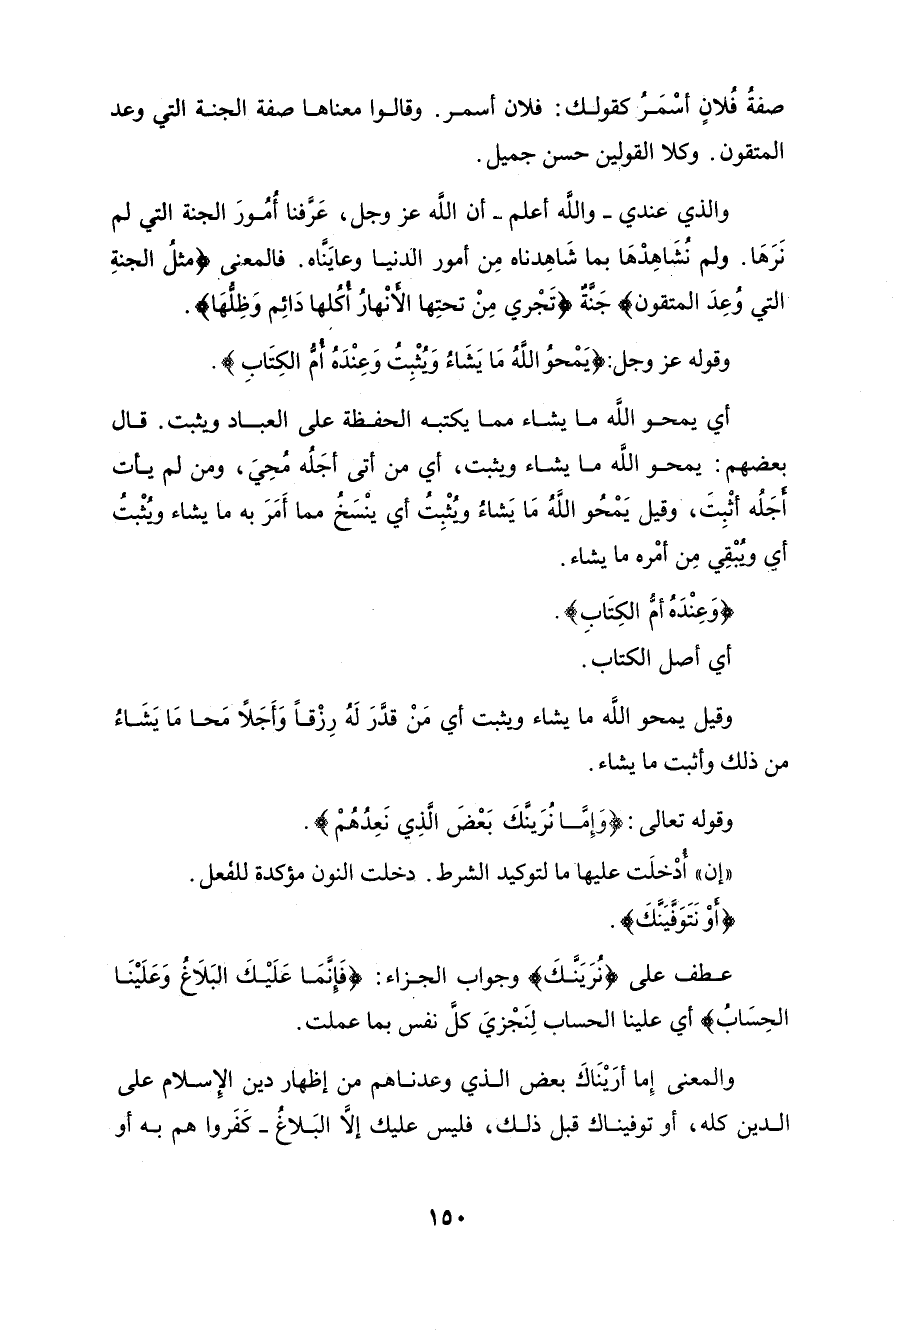 صفةُ فُلانٍ أسْمَرُ كقولك: فلان أسمر. وقالوا معناها صفة الجنة التي وعد
المتقون. وكلا القولين حسن جميل.
والذي عندي - واللَّه أعلم - أن اللَّه عز وجل، عَرَّفنا أُمُورَ الجنة التي لم
نَرَهَا. ولم نُشَاهِدْهَا بما شَاهِدناه مِن أمور الدنيا وعايَنَّاه. فالمعنى ﴿مثلُ الجنةِ
التي وُعِدَ المتقون﴾ جَنَّةٌ ﴿تَجْري مِنْ تحتِها الأَنْهارُ أُكُلها دَائِم وَظِلُّهَا﴾.
وقوله عز وجل: ﴿يَمْحوُ اللَّهُ مَا يَشَاءُ وَيُثْبِتُ وَعِنْدَهُ أُمُّ الكِتَابِ﴾.
أي يمحو اللَّه ما يشاء مما يكتبه الحفظة على العباد ويثبت. قال
بعضهم: يمحو اللَّه ما يشاء ويثبت، أي من أتى أجَلُه مُحِيَ، ومن لم يأت
أَجَلُه أثْبِتَ، وقيل يَمْحُو اللَّهُ مَا يَشاءُ ويُثْبِتُ أي ينْسَخُ مما أمَرَ به ما يشاء ويُثْبتُ
أي ويُبْقِي مِن أمْره ما يشاء.
﴿وَعِنْدَهُ أمُّ الكِتَابِ﴾.
أي أصل الكتاب.
وقيل يمحو اللَّه ما يشاء ويثبت أي مَنْ قدَّرَ لَهُ رِزْقاً وَأَجَلًا مَحا مَا يَشَاءُ
من ذلك وأثبت ما يشاء.
وقوله تعالى: ﴿وَإِمَّا نُرَيَنَّكَ بَعْضَ الَّذِي نَعِدُهُمْ﴾.
«إن» أُدْخلَت عليها ما لتوكيد الشرط. دخلت النون مؤكدة للفعل.
﴿أَوْ نَتَوَفَّيَنَّكَ﴾.
عطف على ﴿نُرَيَنَّكَ﴾ وجواب الجزاء: ﴿فَإِنَّمَا عَلَيْكَ البَلَاغُ وَعَلَيْنَا
الحِسَابُ﴾ أي علينا الحساب لِنَجْزيَ كلَّ نفس بما عملت.
والمعنى إما أرَيْنَاكَ بعض الذي وعدناهم من إظهار دين الإسلام على
الدين كله، أو توفيناك قبل ذلك، فليس عليك إلَّا البَلاغُ - كَفَروا هم به أو
١٥٠